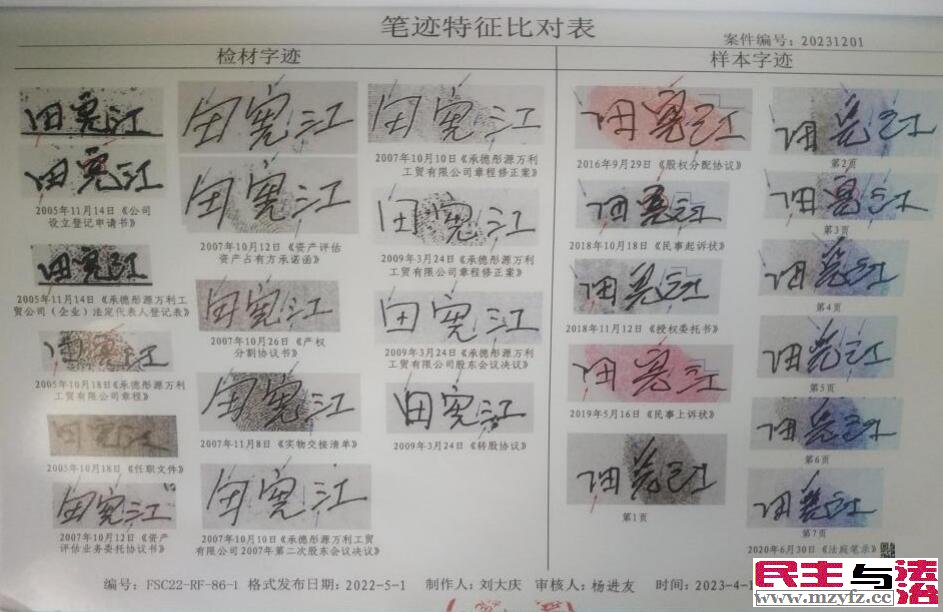 笔迹特征比对表
案件编号：20231201
检材字迹
样本字迹
田宪江
田宪江
2005年11月14日《公司
设立登记申请书》
田宪江
2005年11月14日《承德彤源万利工
贸公司（企业）法定代表人登记表》
田宪江
2005年10月18日《承德彤源万利
工贸有限公司章程》
田宪江
2005年10月18日《任职文件》
田宪江
2007年10月12日《资产
评估业务委托协议书》
田宪江
田宪江
2007年10月12日《资产评估
资产占有方承诺函》
田宪江
2007年10月26日《产权
分割协议书》
田宪江
2007年11月8日《实物交接清单》
田宪江
2007年10月10日《承德彤源万利工贸
有限公司2007年第二次股东会议决议》
田宪江
2007年10月10日《承德彤源万利
工贸有限公司章程修正案》
田宪江
2009年3月24日《承德彤源万利
工贸有限公司章程修正案》
田宪江
2009年3月24日《承德彤源万利
工贸有限公司股东会议决议》
田宪江
2009年3月24日《转股协议》
田宪江
2016年9月29日《股权分配协议》
田宪江
2018年10月18日《民事起诉状》
田宪江
2018年11月12日《授权委托书》
田宪江
2019年5月16日《民事上诉状》
田宪江
第1页
田宪江
第2页
田宪江
第3页
田宪江
第4页
田宪江
第5页
田宪江
第6页
田宪江
第7页
2020年6月30日《法庭笔录》
编号：FSC22-RF-86-1 格式发布日期：2022-5-1 制作人：刘大庆 审核人：杨进友 时间：2023-4-1
民主与法治
www.mzyfz.cc